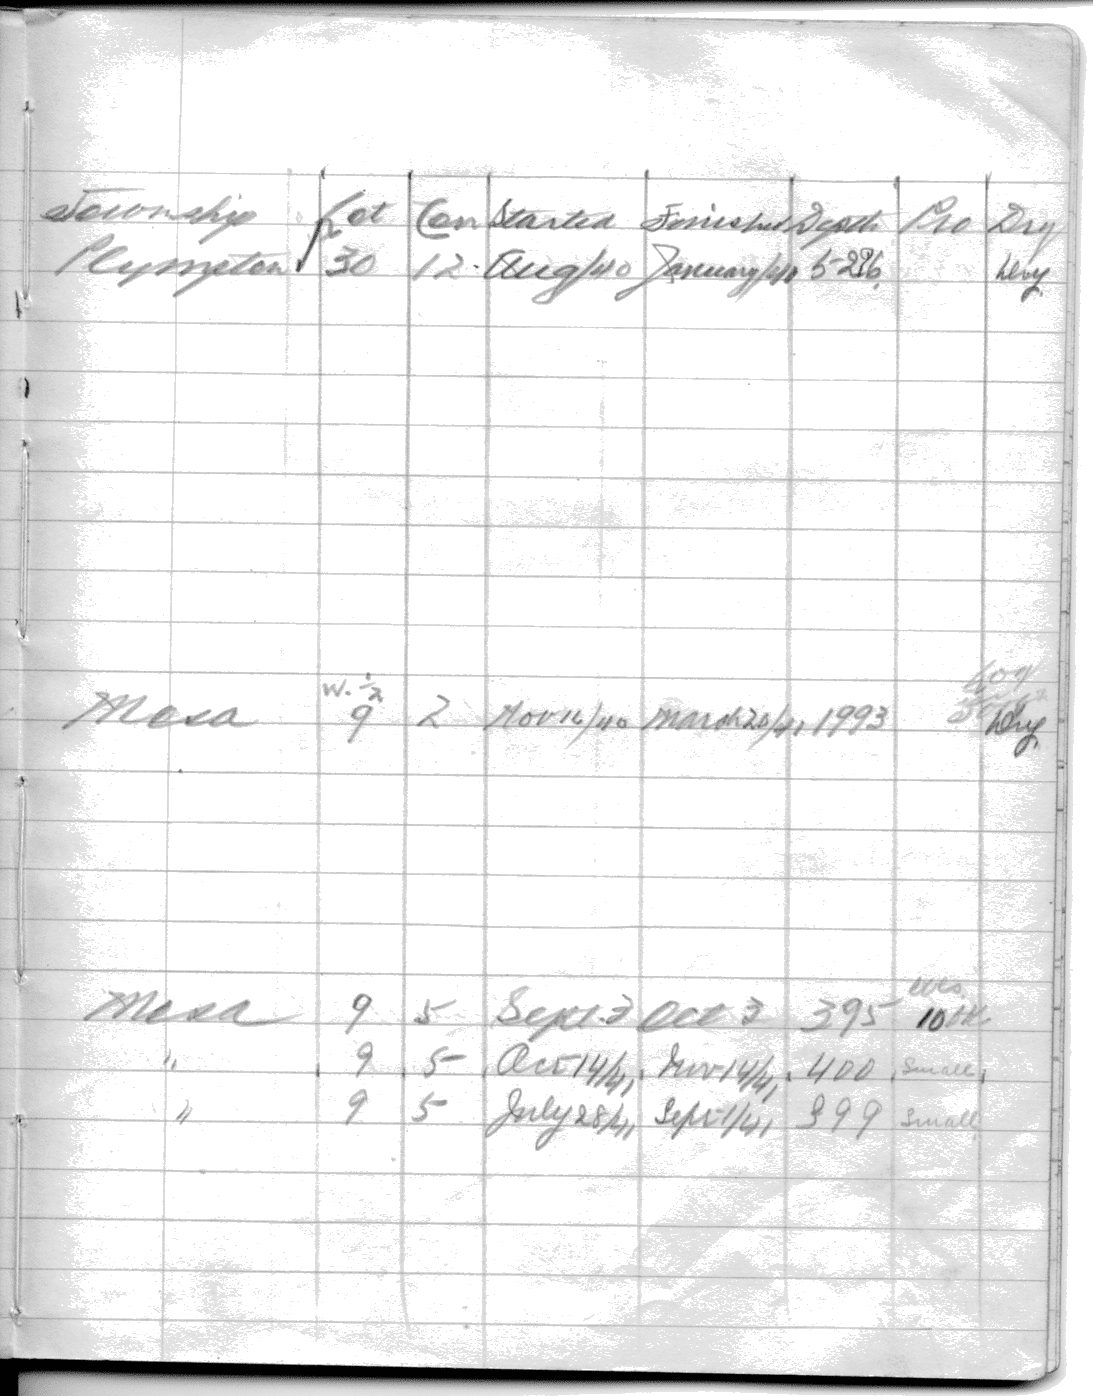 Township Lot Con Started Finished Depth Pro Dry
Plympton 30 12 Aug/40 January/40 Dry
W. 1/2
Mosa 9 2 Nov 16/40 March 20/41 1993 Dry
Mosa 9 5 Sept 3 Oct 3 395 10
" 9 5 Oct 14/41 Nov 14/41 400 Small
" 9 5 July 28/41 Sept 1/41 399 Small